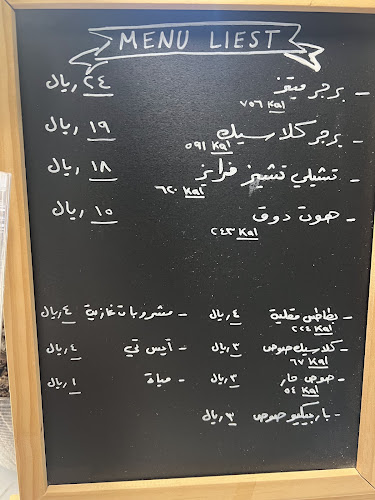 MENU LIEST
- برجر ميقز ٢٤ ريال
٧٥٦ Kal
- برجر كلاسيك ١٩ ريال
٥٩١ Kal
- تشيلي تشيز فرايز ١٨ ريال
٦٢٠ Kal
- هوت دوق ١٥ ريال
٢٤٣ Kal
- بطاطس مقلية ٤ ريال
٢٢٤ Kal
- كلاسيك صوص ٣ ريال
٦٧ Kal
- صوص حار ٣ ريال
٥٤ Kal
- باربيكيو صوص ٣ ريال
- مشروبات غازية ٤ ريال
- آيس تي ٤ ريال
- مياة ١ ريال